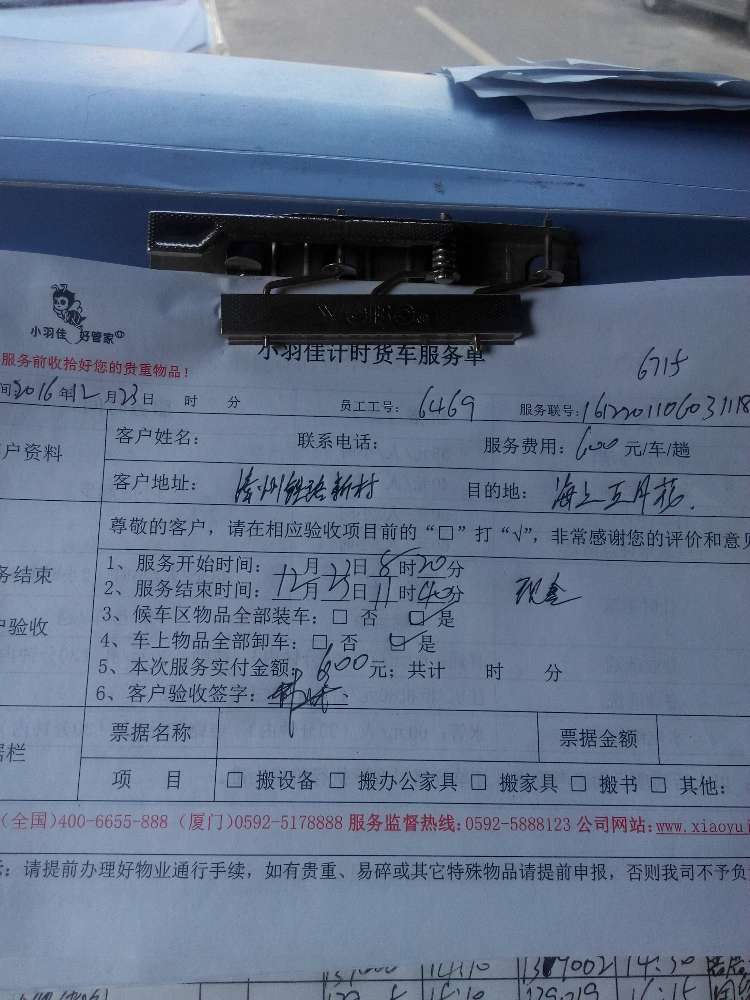 小羽佳 好管家
小羽佳计时货车服务单
6715
服务前收拾好您的贵重物品!
间2016年12月23日 时 分 员工工号: 6469 服务联号:
户资料
客户姓名: 联系电话: 服务费用: 600 元/车/趟
客户地址: 漳州铁路新村 目的地: 海上五月花.
尊敬的客户,请在相应验收项目前的“□”打“√”,非常感谢您的评价和意见
务结束
户验收
1、服务开始时间: 12月23日8时20分
2、服务结束时间: 12月23日11时40分 现金
3、候车区物品全部装车:□ 否 ☑ 是
4、车上物品全部卸车:□ 否 ☑ 是
5、本次服务实付金额: 600元; 共计 时 分
6、客户验收签字:
据栏
票据名称 票据金额
项 目 □ 搬设备 □ 搬办公家具 □ 搬家具 □ 搬书 □ 其他:
(全国)400-6655-888 (厦门)0592-5178888 服务监督热线:0592-5888123 公司网站:www.xiaoyu
:请提前办理好物业通行手续,如有贵重、易碎或其它特殊物品请提前申报,否则我司不予负
14:10 14:30
16:10 16:15